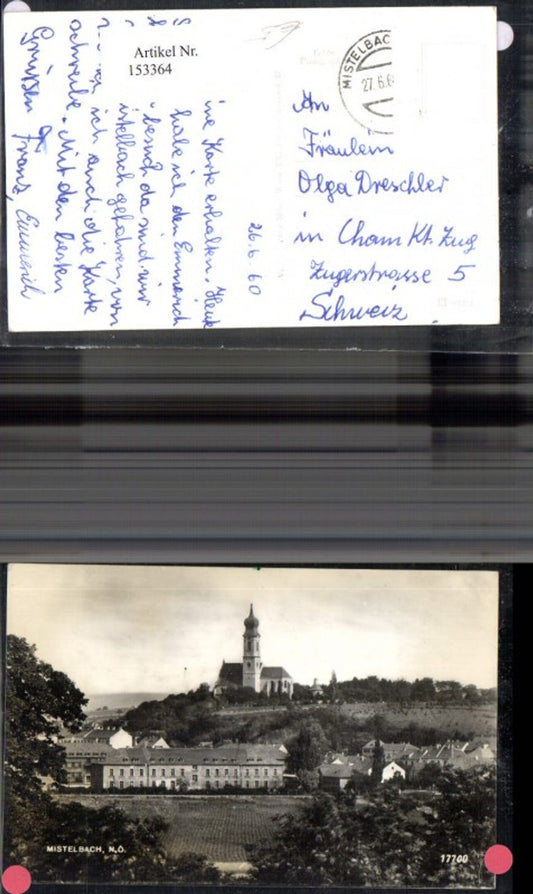 Artikel Nr.
153364
MISTELBAC
27.6.6
An
Fräulein
Olga Dreschler
in Cham Kt. Zug
Zugerstrasse 5
Schweiz
26.6.60
ine Karte erhalten. Heute
habe ich den Emmerich
besucht da sind wir
istelbach gefahren, von
ich auch die Karte
schreibe. Mit den besten
Grüßen Franz, Emmerich
MISTELBACH, N.Ö.
17700